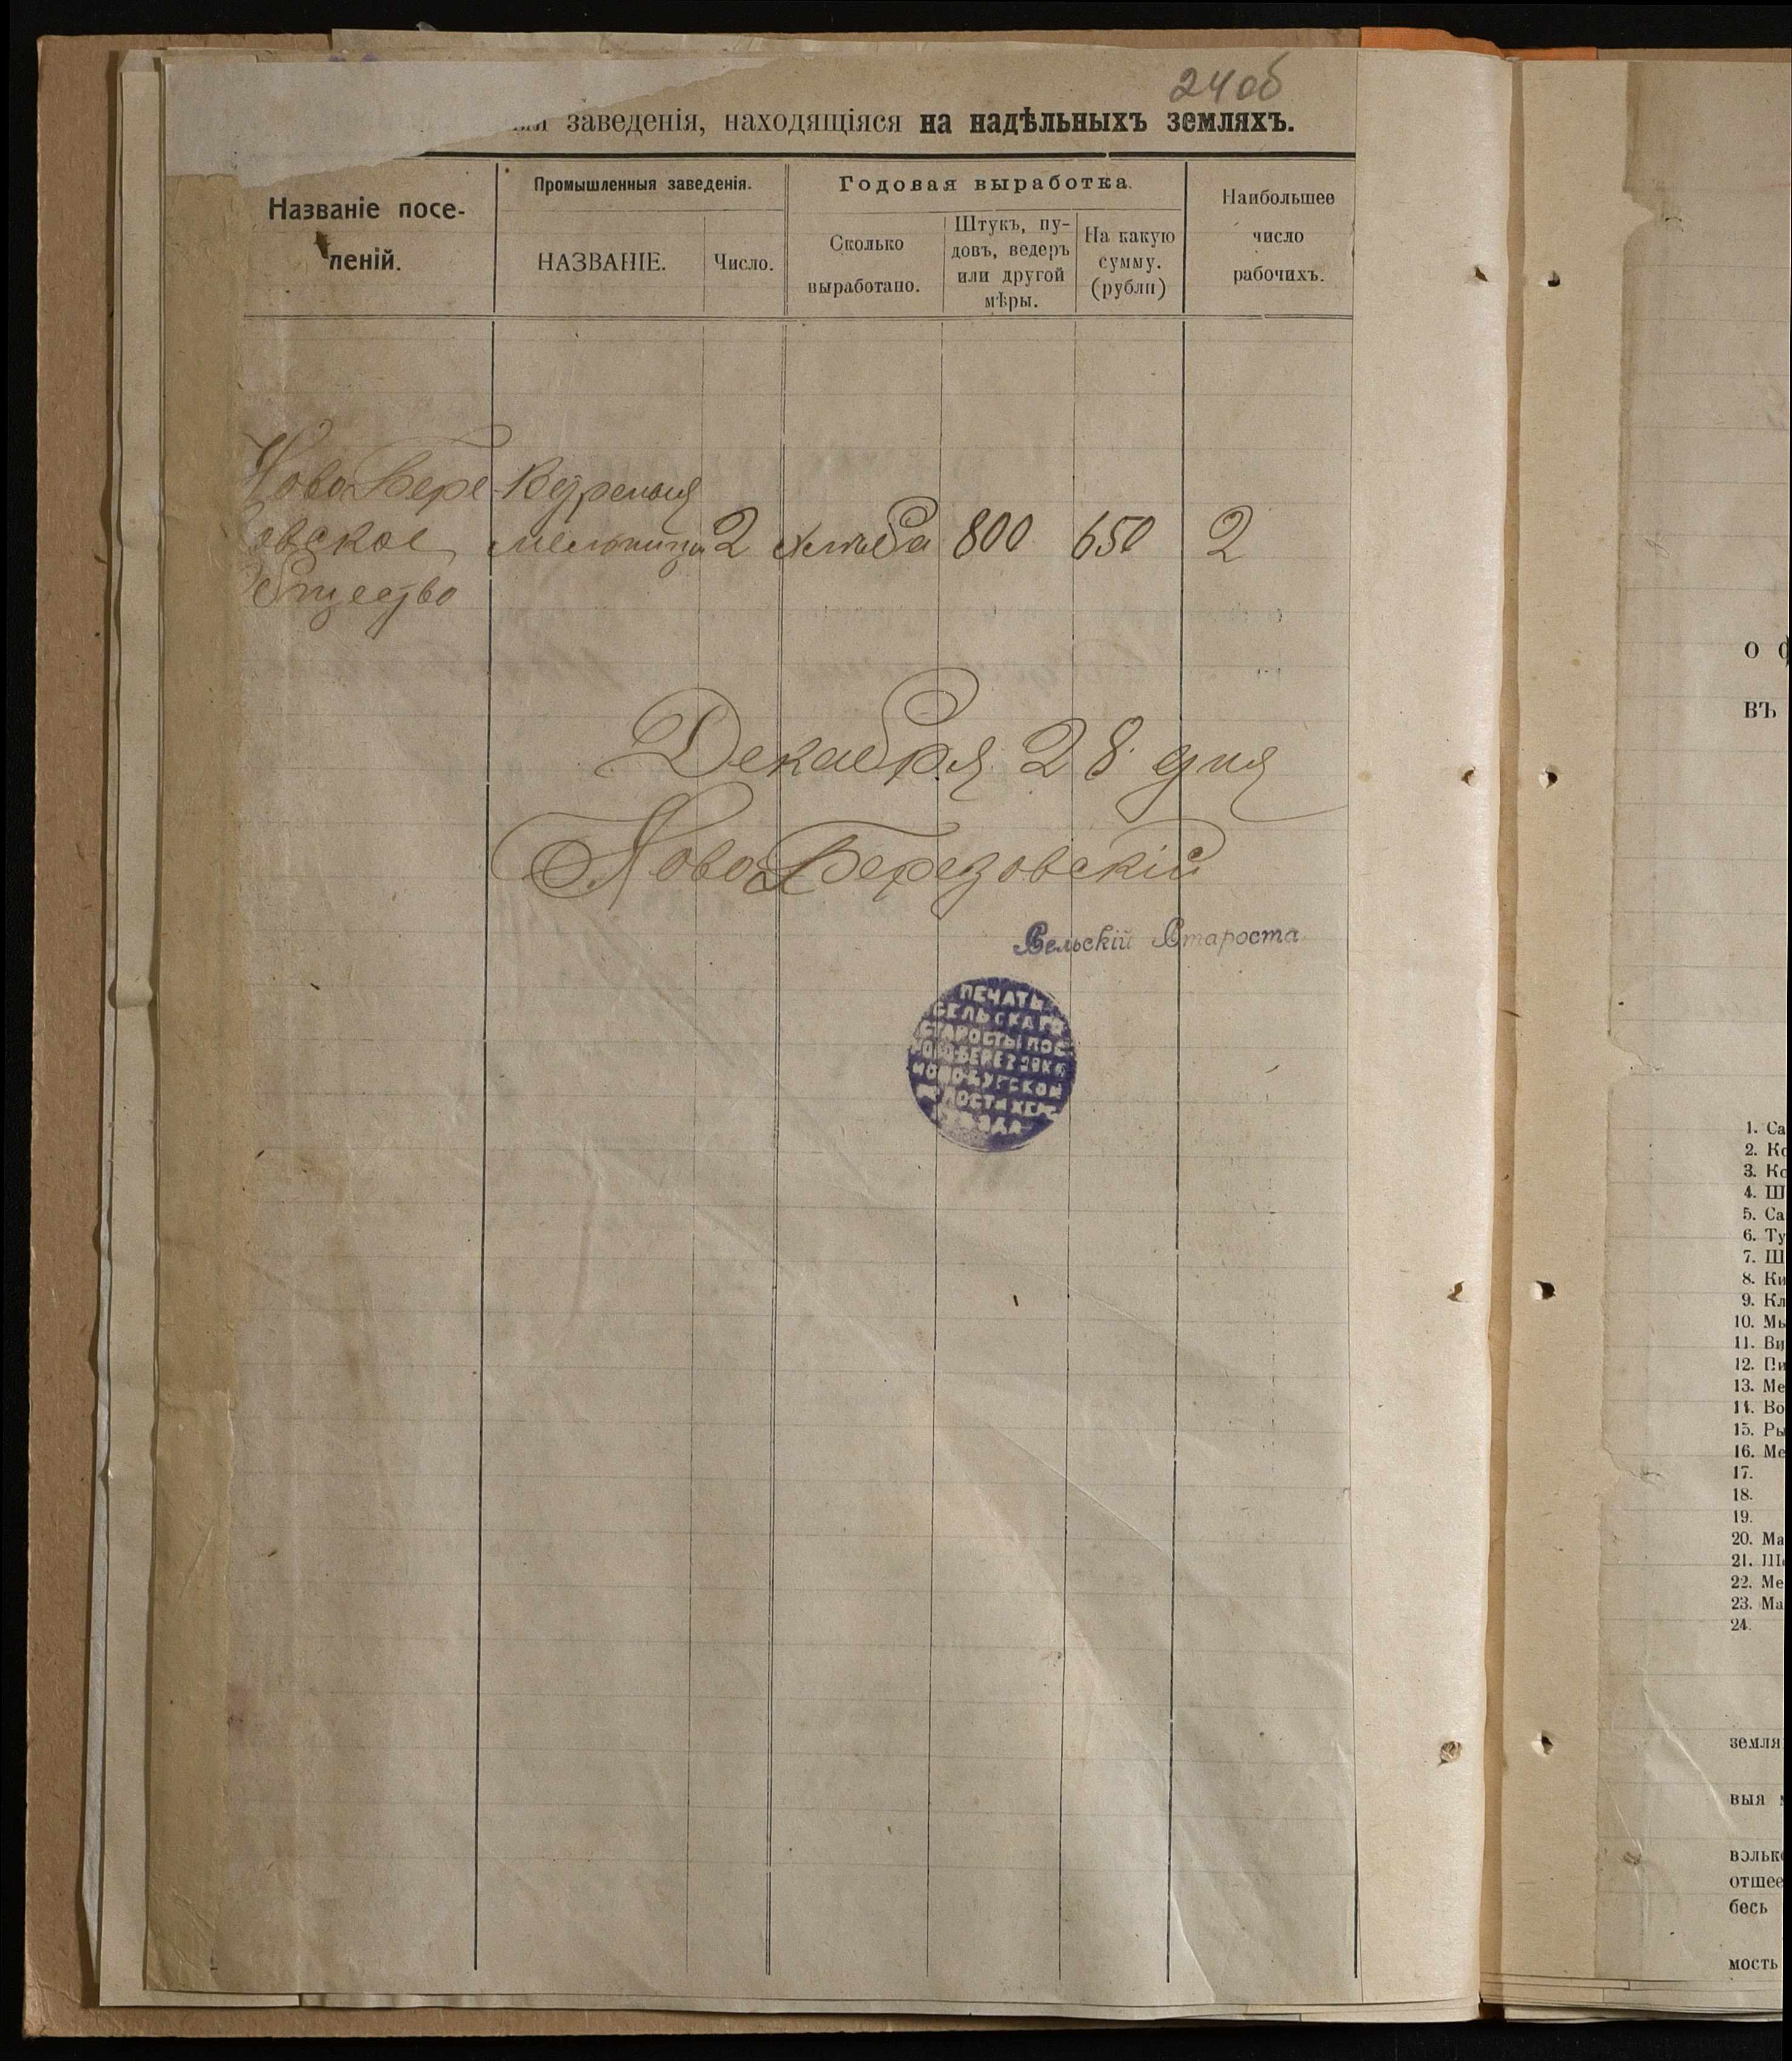 24 об
заведенія, находящіяся на надѣльныхъ земляхъ.
Названіе посе-
леній.
Промышленныя заведенія.
НАЗВАНІЕ.
Число.
Годовая выработка.
Сколько
выработано.
Штукъ, пу-
довъ, ведеръ
или другой
мѣры.
На какую
сумму.
(рубли)
Наибольшее
число
рабочихъ.
Ново Бере Ветреныя
овское мельницы 2 хлѣба 800 650 2
Общество
Декабря 28 дня
Ново Березовскій
Сельскій Староста
ПЕЧАТЬ
СЕЛЬСКАГО
СТАРОСТЫ ПОС
НОВО-БЕРЕЗОВКИ
НОВО-БУГСКОЙ
ВОЛОСТИ ХЕРС
УѢЗДА
о ф
въ
1. Са
2. Ко
3. Ко
4. Ш
5. Са
6. Ту
7. Ш
8. Ки
9. Кл
10. Мы
11. Ви
12. Пи
13. Ме
14. Во
15. Ры
16. Ме
17.
18.
19.
20. Ма
21. Ш
22. Ме
23. Ма
24.
земля
выя
вольк
отшее
бесь
мость